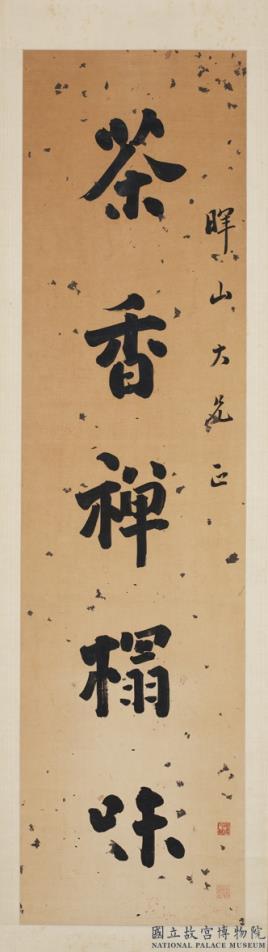 暉山大兄正
茶香禅榻味
國立故宮博物院
NATIONAL PALACE MUSEUM